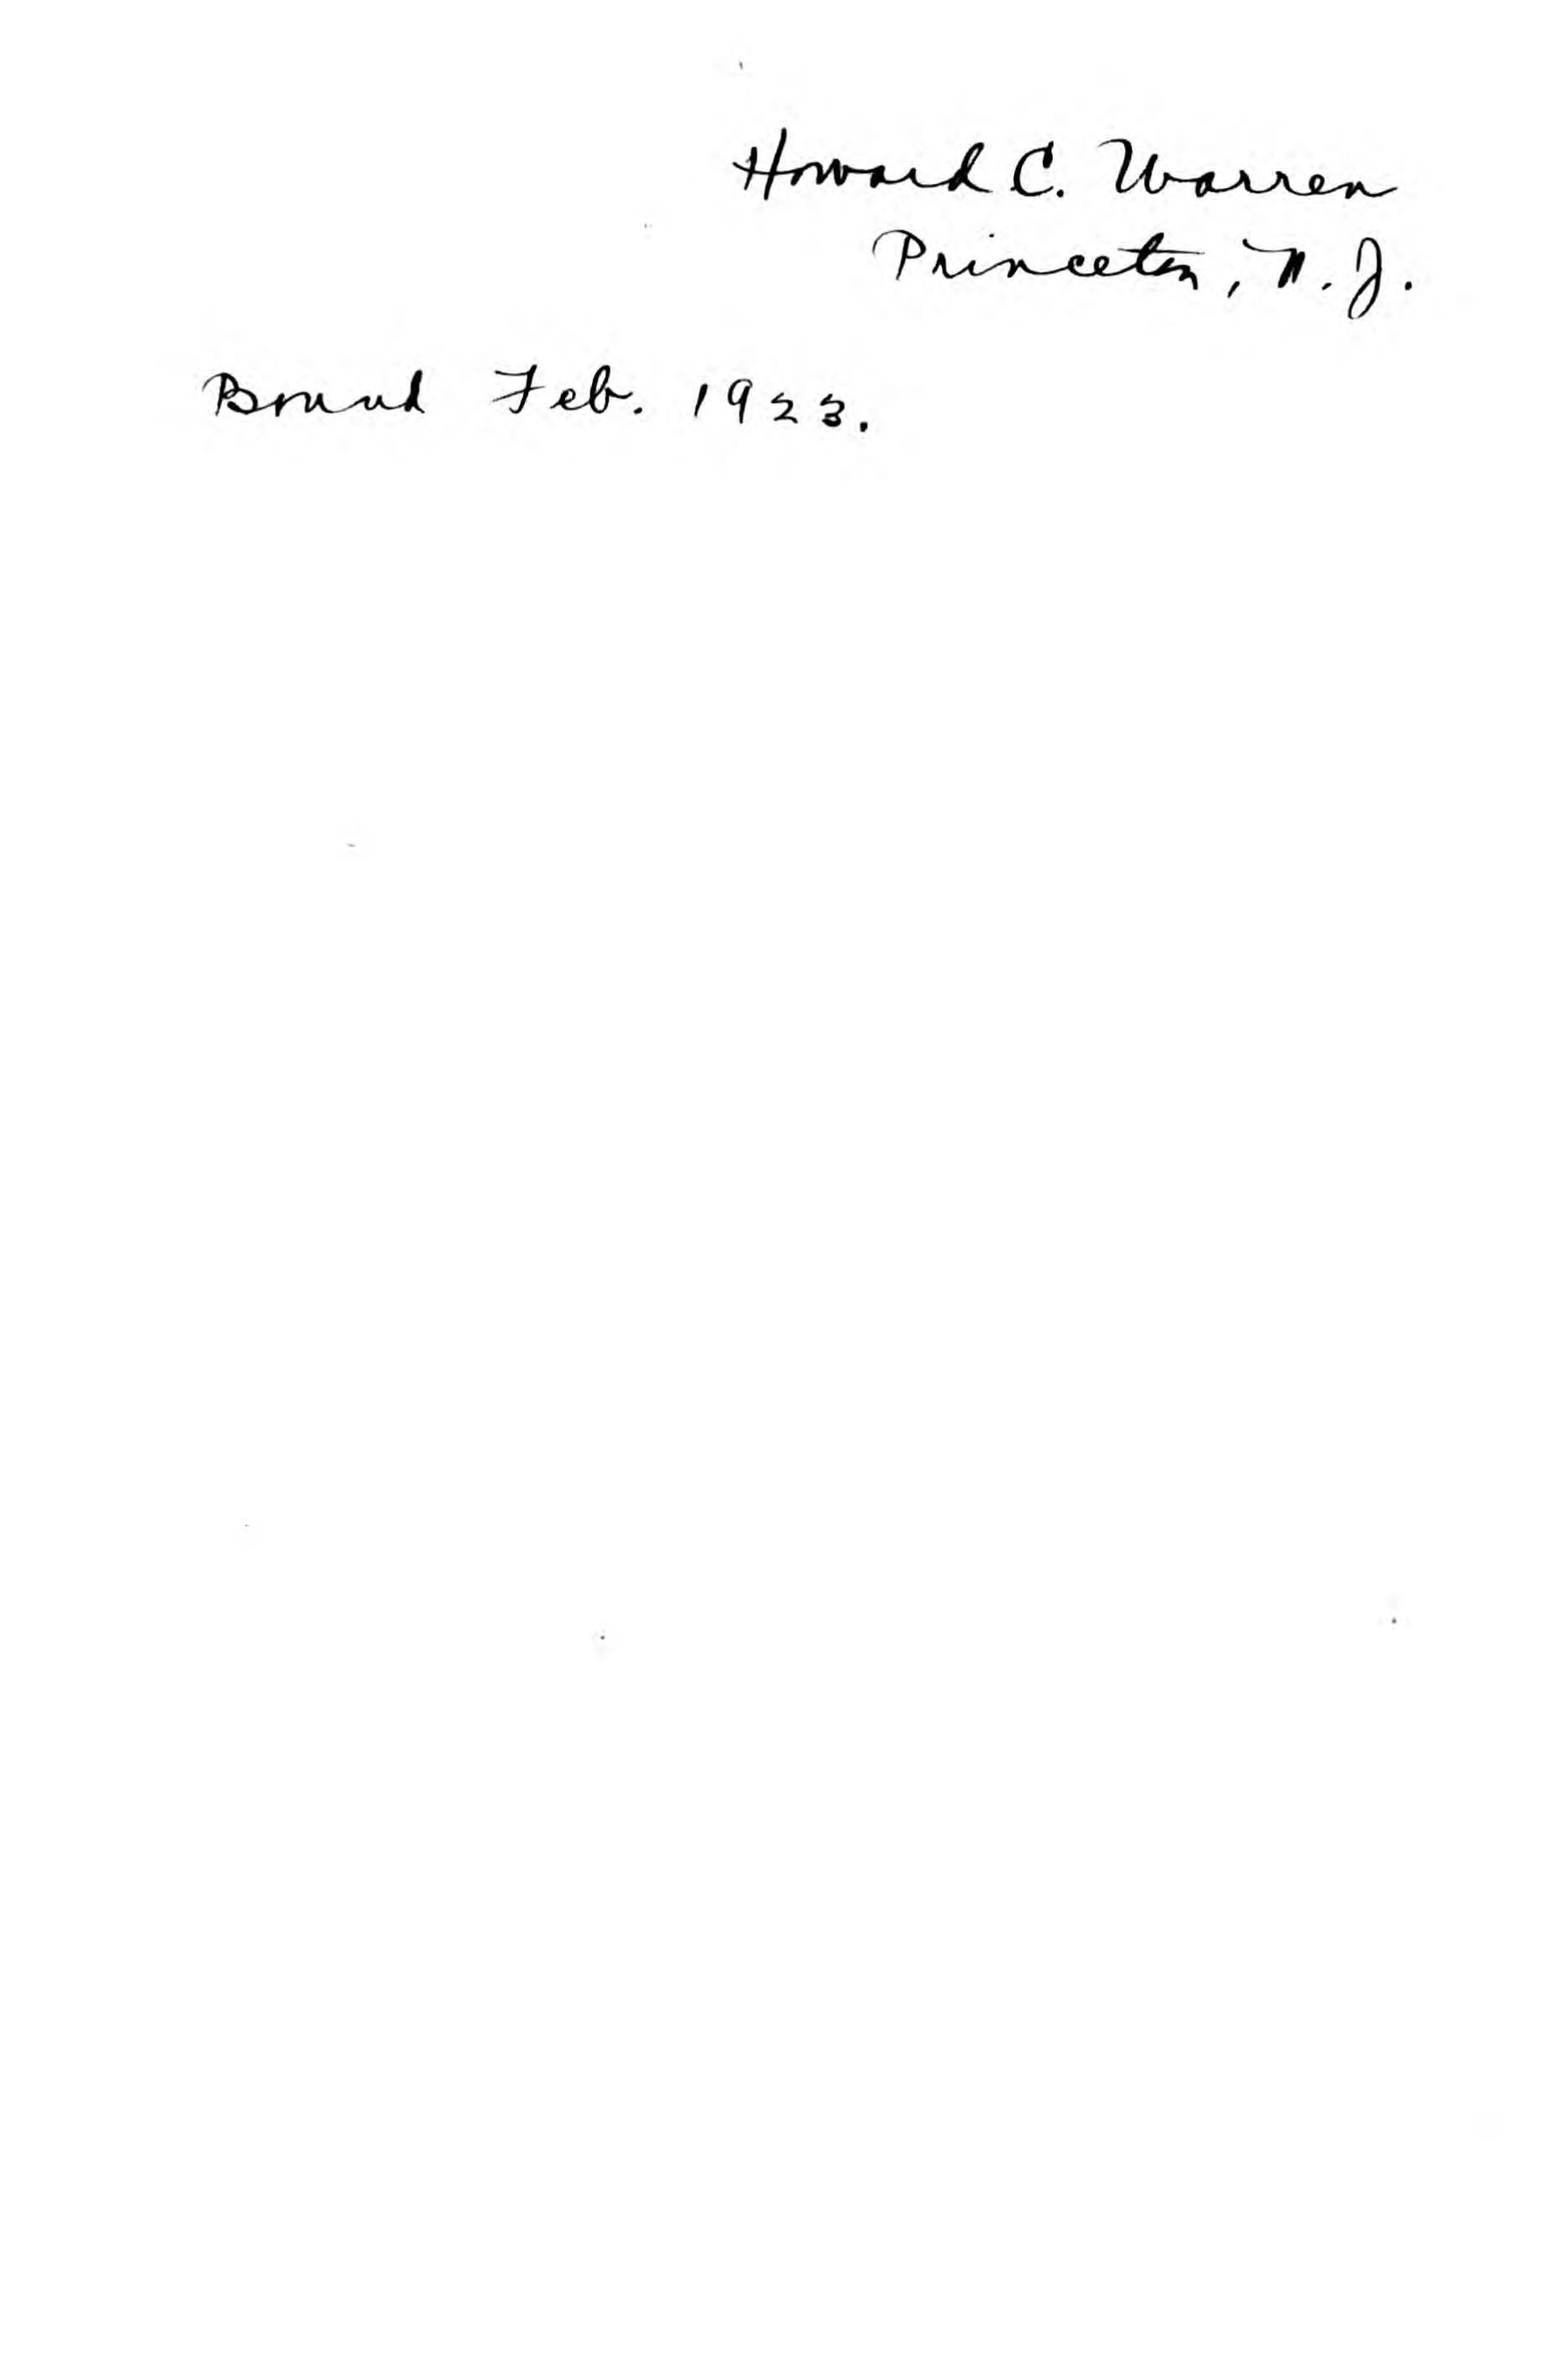 Howard C. Warren
Princeton, N. J.
Bound Feb. 1923.